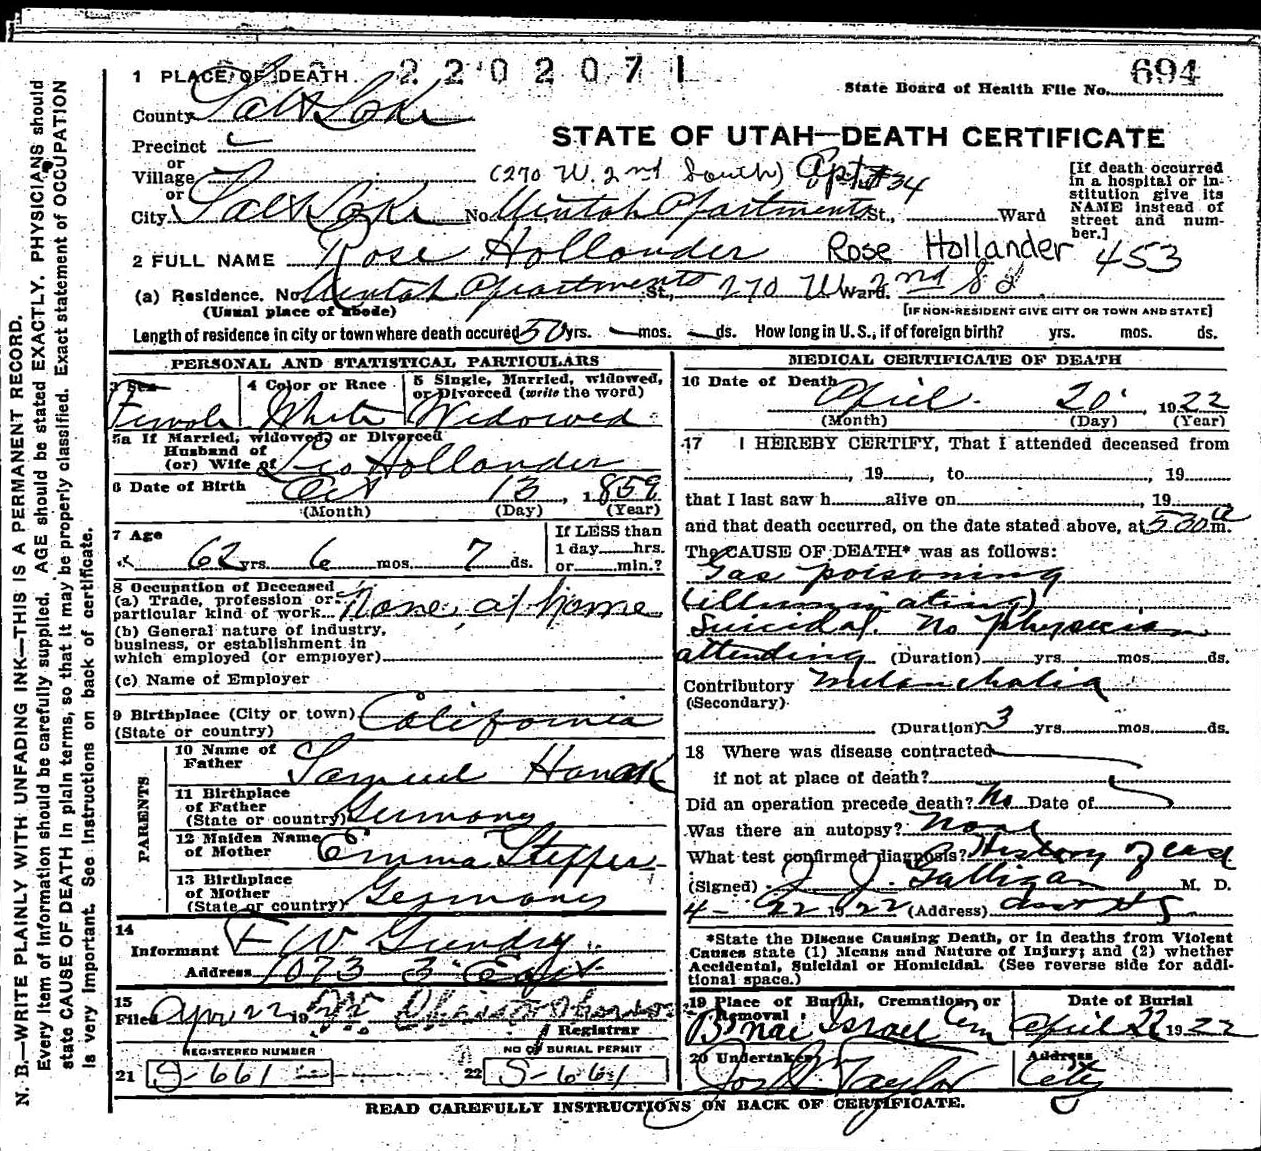 1 PLACE OF DEATH 2202071
694
State Board of Health File No.
County Salt Lake
STATE OF UTAH—DEATH CERTIFICATE
Precinct
or
Village
(270 W. 2nd South) Apt #34
or
City Salt Lake No. Uintah Apartments St., Ward
[If death occurred in a hospital or in-
stitution give its
NAME instead of
street and num-
ber.]
2 FULL NAME Rose Hollander Rose Hollander 453
(a) Residence. No. Uintah Apartments St., 270 W Ward. 2nd So
(Usual place of abode) [IF NON-RESIDENT GIVE CITY OR TOWN AND STATE]
Length of residence in city or town where death occured 50 yrs. — mos. — ds. How long in U.S., if of foreign birth? yrs. mos. ds.
PERSONAL AND STATISTICAL PARTICULARS
3 Sex 4 Color or Race 5 Single, Married, widowed,
or Divorced (write the word)
Female White Widowed
5a If Married, widowed, or Divorced
Husband of
(or) Wife of Leo Hollander
6 Date of Birth Oct 13, 1859
(Month) (Day) (Year)
7 Age
If LESS than
1 day......hrs.
or......min.?
62 yrs. 6 mos. 7 ds.
8 Occupation of Deceased
(a) Trade, profession or
particular kind of work None, at home
(b) General nature of industry,
business, or establishment in
which employed (or employer)
(c) Name of Employer
9 Birthplace (City or town)
(State or country) California
PARENTS
10 Name of
Father Samuel Hanak
11 Birthplace
of Father
(State or country) Germany
12 Maiden Name
of Mother Emma
13 Birthplace
of Mother
(State or country) Germany
14
Informant F W Gundry
Address 1073 3 East
15
Filed Apr 22 1922
Registrar
REGISTERED NUMBER NO OF BURIAL PERMIT
21 S-661 22 S-661
MEDICAL CERTIFICATE OF DEATH
16 Date of Death April 20 1922
(Month) (Day) (Year)
17 I HEREBY CERTIFY, That I attended deceased from
, 19 , to , 19
that I last saw h alive on , 19
and that death occurred, on the date stated above, at 530 a m.
The CAUSE OF DEATH* was as follows:
Gas poisoning
(illuminating)
Suicidal. No physician
attending (Duration) yrs. mos. ds.
Contributory Melancholia
(Secondary)
(Duration) 3 yrs. mos. ds.
18 Where was disease contracted
if not at place of death?
Did an operation precede death? No Date of
Was there an autopsy? None
What test confirmed diagnosis? History of case
(Signed) J. J. Galligan M. D.
4- 22 1922 (Address)
*State the Disease Causing Death, or in deaths from Violent
Causes state (1) Means and Nature of Injury; and (2) whether
Accidental, Suicidal or Homicidal. (See reverse side for addi-
tional space.)
19 Place of Burial, Cremation, or
Removal
Date of Burial
B'nai Israel Cem April 22 1922
20 Undertaker Address
Jos Wm Taylor City
READ CAREFULLY INSTRUCTIONS ON BACK OF CERTIFICATE.
N. B.—WRITE PLAINLY WITH UNFADING INK—THIS IS A PERMANENT RECORD.
Every item of information should be carefully supplied. AGE should be stated EXACTLY. PHYSICIANS should
state CAUSE OF DEATH in plain terms, so that it may be properly classified. Exact statement of OCCUPATION
is very important. See instructions on back of certificate.